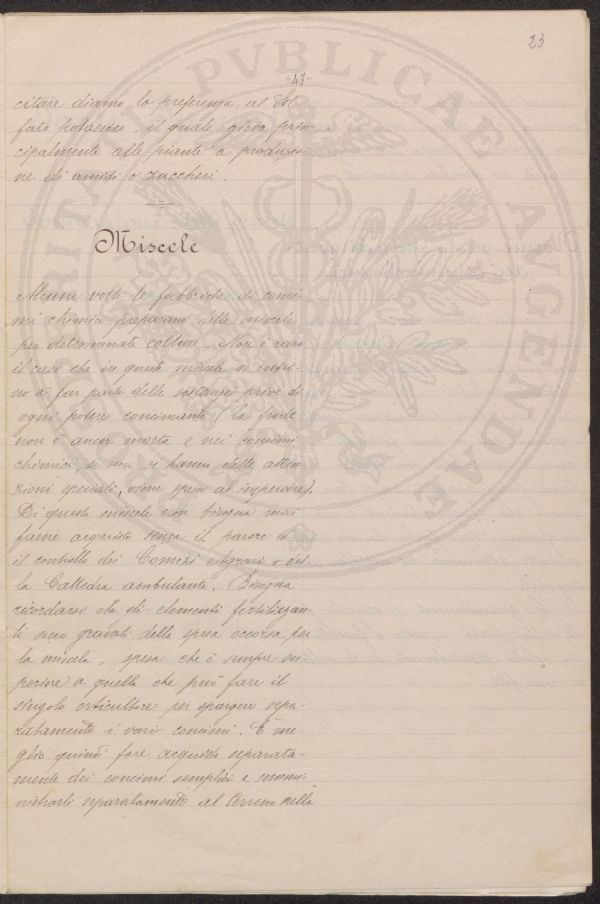 23
-47-
citare diamo la preferenza al Sol-
fato potassico, il quale giova prin-
cipalmente alle piante a produzio-
ne di amidi o zuccheri.
Miscele
Alcune volte le fabbriche di conci-
mi chimici preparano delle miscele
per determinate colture. Non è raro
il caso che in queste miscele v'entri-
no a far parte delle sostanze prive di
ogni potere concimante (la frode
non è ancor morta e nei concimi
chimici, se non si hanno delle atten-
zioni speciali, viene spesso ad imperare).
Di queste miscele non bisogna mai
farne acquisto senza il parere o
il controllo dei Comizi Agrari o del-
la Cattedra ambulante. Bisogna
ricordarsi che gli elementi fertilizzan-
ti sono gravati della spesa occorsa per
la miscela, spesa che è sempre su-
periore a quella che può fare il
singolo orticultore per spargere sepa-
ratamente i vari concimi. È me-
glio quindi fare acquisto separata-
mente dei concimi semplici e sommi-
nistrarli separatamente al terreno nella
PVBLICAE AVGENDAE